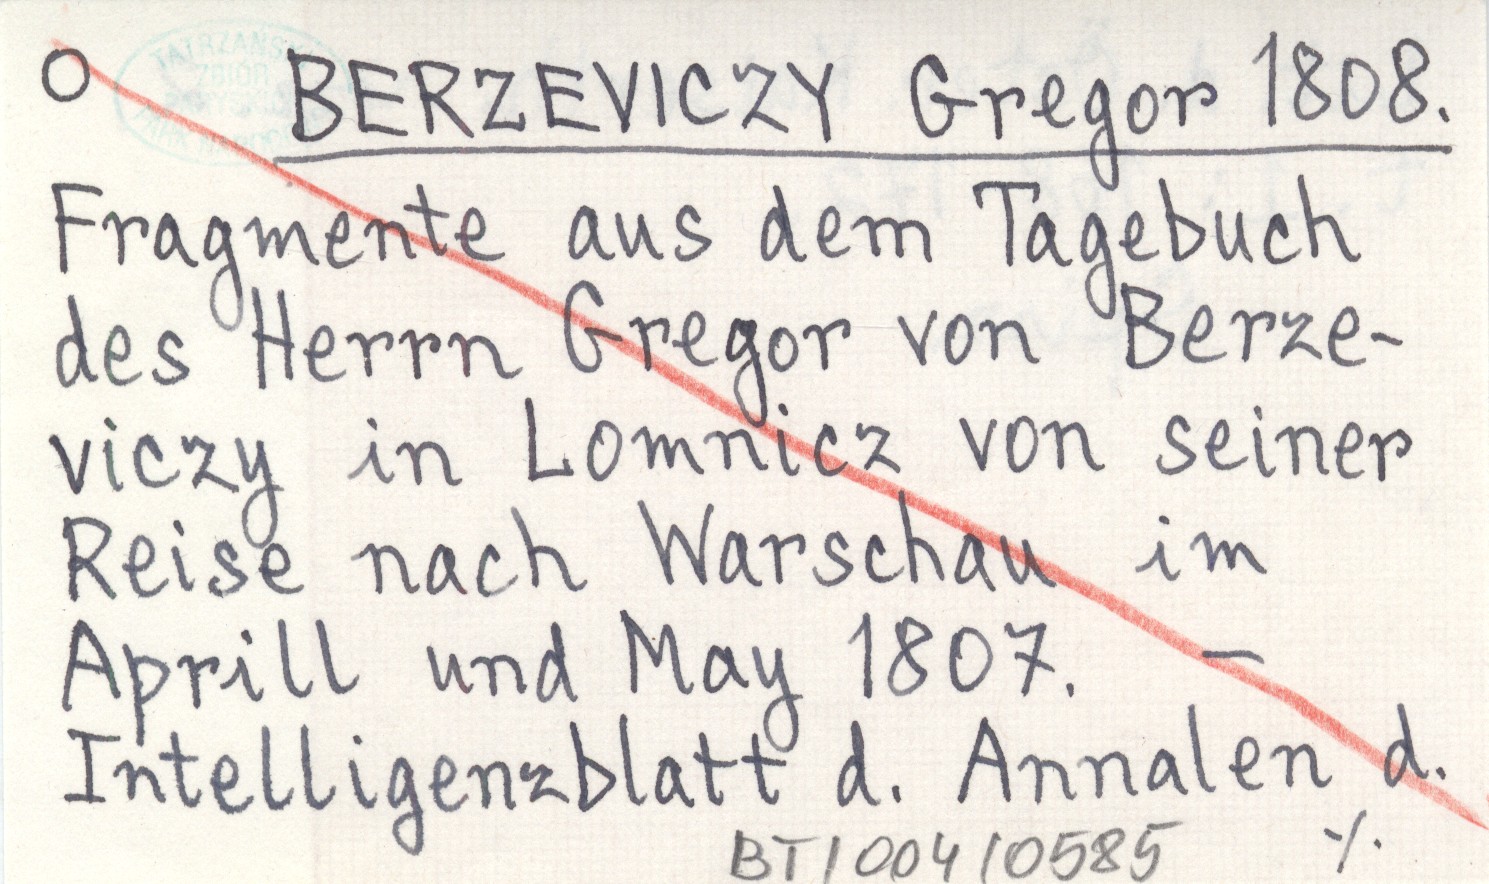 O BERZEVICZY Gregor 1808.
Fragmente aus dem Tagebuch
des Herrn Gregor von Berze-
viczy in Lomnicz von seiner
Reise nach Warschau im
Aprill und May 1807. –
Intelligenzblatt d. Annalen d.
BT/004/0585 ·/.